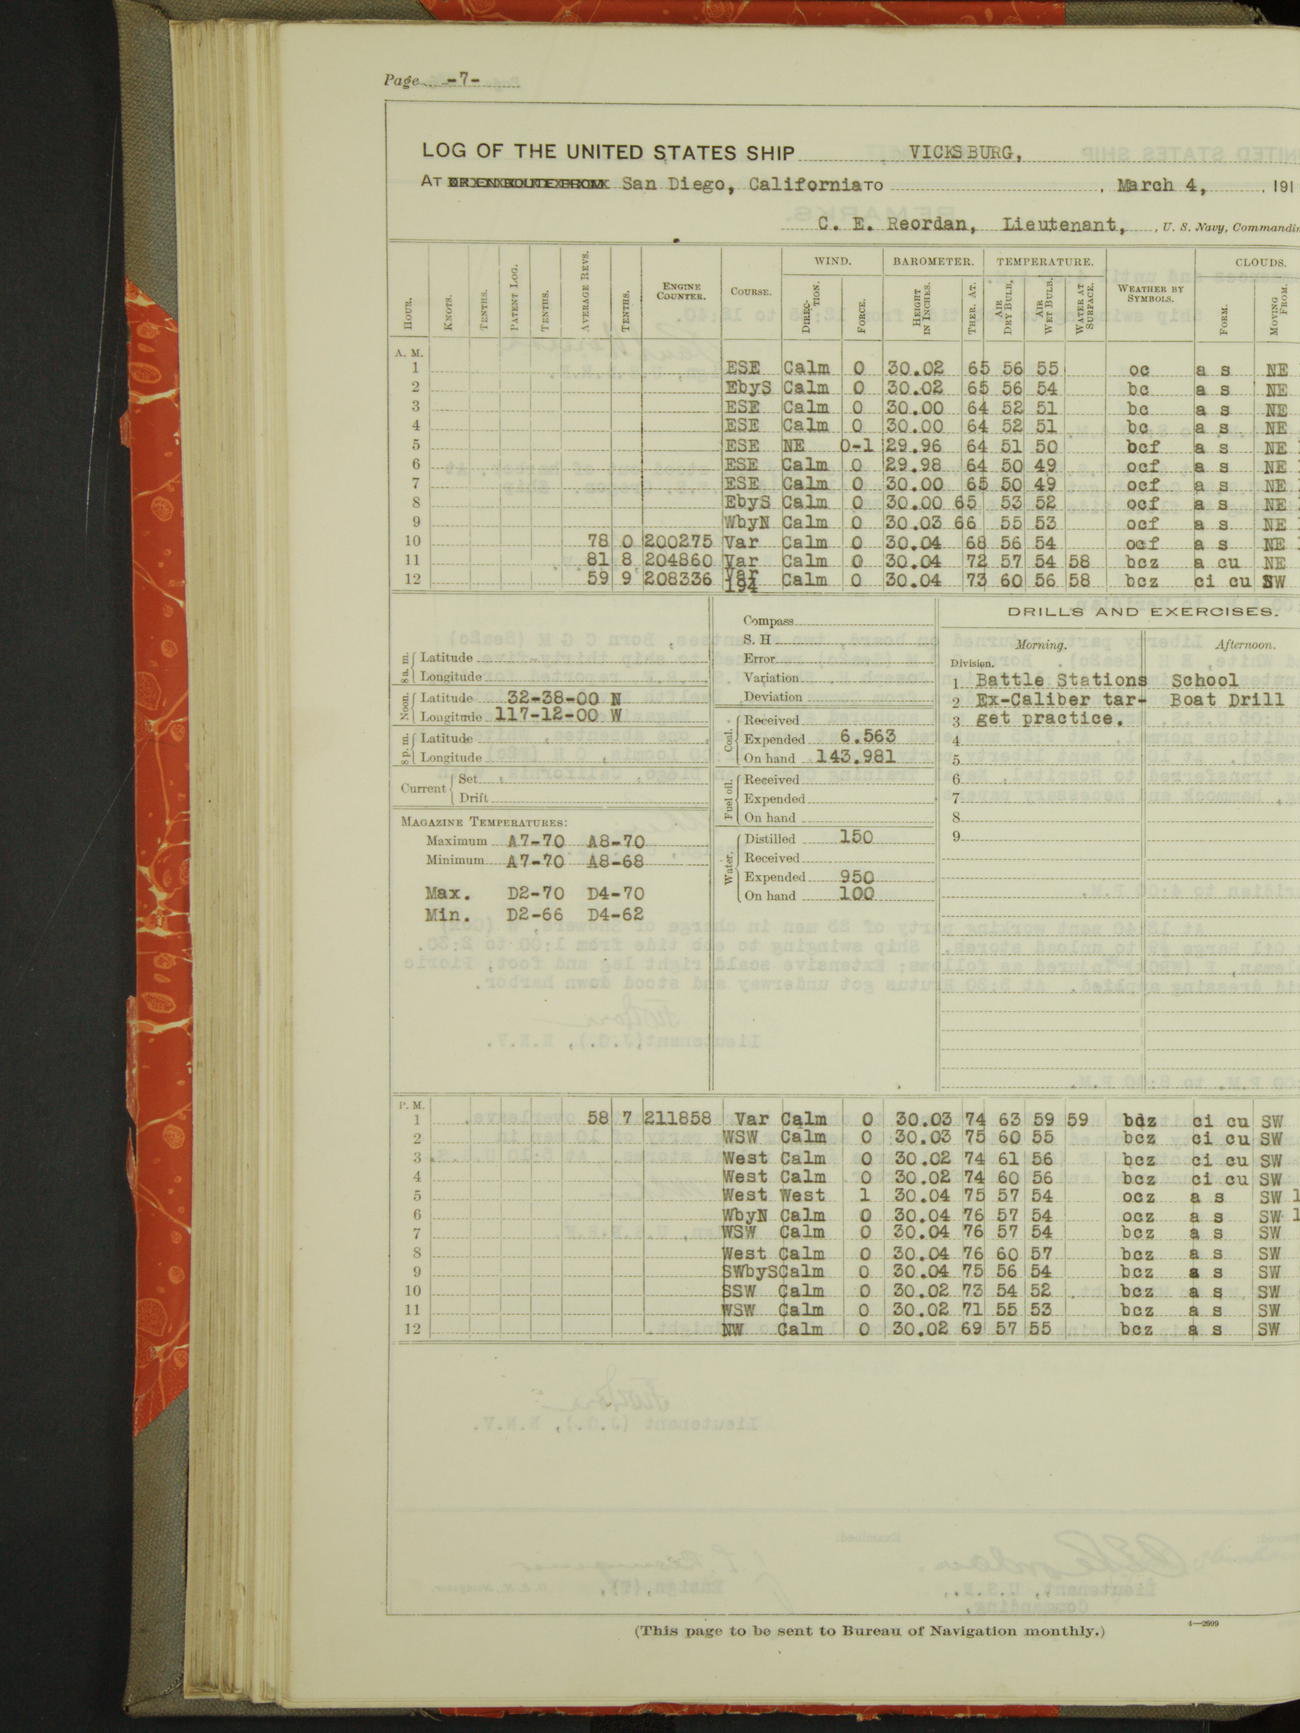 Page -7-
LOG OF THE UNITED STATES SHIP VICKSBURG,
AT OR EN ROUTE FROM San Diego, California TO , March 4, , 191
C. E. Reordan, Lieutenant, , U. S. Navy, Commandin
HOUR. KNOTS. TENTHS. PATENT LOG. TENTHS. AVERAGE REVS. TENTHS. ENGINE COUNTER. COURSE. WIND. DIRECTION. FORCE. BAROMETER. HEIGHT IN INCHES. THER. AT. TEMPERATURE. AIR DRY BULB. AIR WET BULB. WATER AT SURFACE. WEATHER BY SYMBOLS. CLOUDS. FORM. MOVING FROM.
A. M.
1 ESE Calm 0 30.02 65 56 55 oc a s NE
2 EbyS Calm 0 30.02 65 56 54 bc a s NE
3 ESE Calm 0 30.00 64 52 51 bc a s NE
4 ESE Calm 0 30.00 64 52 51 bc a s NE
5 ESE NE 0-1 29.96 64 51 50 bcf a s NE
6 ESE Calm 0 29.98 64 50 49 ocf a s NE
7 ESE Calm 0 30.00 65 50 49 ocf a s NE
8 EbyS Calm 0 30.00 65 53 52 ocf a s NE
9 WbyN Calm 0 30.03 66 55 53 ocf a s NE
10 78 0 200275 Var Calm 0 30.04 68 56 54 ocf a s NE
11 81 8 204860 Var Calm 0 30.04 72 57 54 58 bcz a cu NE
12 59 9 208336 Var 194 Calm 0 30.04 73 60 56 58 bcz ci cu SW
8 a.m. Latitude
Longitude
Noon. Latitude 32-38-00 N
Longitude 117-12-00 W
8 p.m. Latitude
Longitude
Current Set
Drift
MAGAZINE TEMPERATURES:
Maximum A7-70 A8-70
Minimum A7-70 A8-68
Max. D2-70 D4-70
Min. D2-66 D4-62
Compass
S. H
Error
Variation
Deviation
Coal. Received
Expended 6.563
On hand 143.981
Fuel oil. Received
Expended
On hand
Water. Distilled 150
Received
Expended 950
On hand 100
DRILLS AND EXERCISES.
Morning. Afternoon.
Division.
1 Battle Stations School
2 Ex-Caliber tar- Boat Drill
3 get practice.
4
5
6
7
8
9
P. M.
1 58 7 211858 Var Calm 0 30.03 74 63 59 59 bdz ci cu SW
2 WSW Calm 0 30.03 75 60 55 bcz ci cu SW
3 West Calm 0 30.02 74 61 56 bcz ci cu SW
4 West Calm 0 30.02 74 60 56 bcz ci cu SW
5 West West 1 30.04 75 57 54 ocz a s SW 1
6 WbyN Calm 0 30.04 76 57 54 ocz a s SW 1
7 WSW Calm 0 30.04 76 57 54 bcz a s SW
8 West Calm 0 30.04 76 60 57 bcz a s SW
9 SWbyS Calm 0 30.04 75 56 54 bcz a s SW
10 SSW Calm 0 30.02 73 54 52 bcz a s SW
11 WSW Calm 0 30.02 71 55 53 bcz a s SW
12 NW Calm 0 30.02 69 57 55 bcz a s SW
(This page to be sent to Bureau of Navigation monthly.)
4—2909